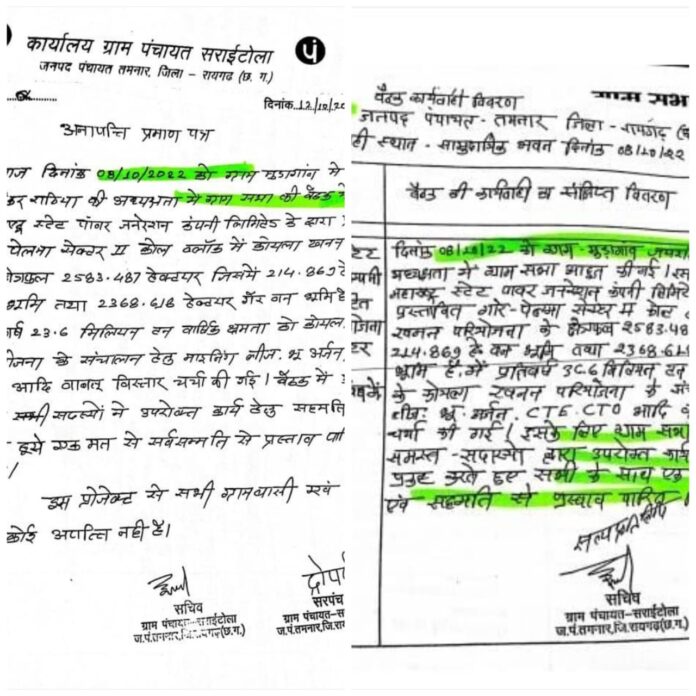 कार्यालय ग्राम पंचायत सराईटोला
जनपद पंचायत तमनार, जिला - रायगढ (छ.ग.)
दिनांक 12/10/20
अनापत्ति प्रमाण पत्र
दिनांक 08/10/2022 को ग्राम मुडागांव में
की अध्यक्षता में ग्राम सभा की बैठक
स्टेट पॉवर जनरेशन कंपनी लिमिटेड के द्वारा
पेलमा सेक्टर II कोल ब्लॉक में कोयला खनन
2583.487 हेक्टयर जिसमें 214.869
भूमि तथा 2368.618 हेक्टयर गैर वन भूमि
23.6 मिलियन टन वार्षिक क्षमता को कोयला
के संचालन हेतु माइनिंग लीज, भू अर्जन,
आदि बाबत् विस्तार चर्चा की गई। बैठक में
सभी सदस्यों ने उपरोक्त कार्य हेतु सहमति
इसे एक मत से सर्वसम्मति से प्रस्ताव
इस प्रोजेक्ट से सभी ग्रामवासी एवं
कोई आपत्ति नहीं है।
सचिव
ग्राम पंचायत-सराईटोला
ज.पं.तमनार,जि.रायगढ़(छ.ग.)
सरपंच
ग्राम पंचायत-सराईटोला
ज.पं.तमनार,जि.
ग्राम सभ
बैठक कार्यवाही विवरण
जनपद पंचायत - तमनार जिला - रायगढ़
स्थान - सामुदायिक भवन दिनांक 08/10/22
बैठक की कार्यवाही का संक्षिप्त विवरण
दिनांक 08/10/22 को ग्राम - मुडागांव
अध्यक्षता में ग्राम सभा आहूत की गई।
स्टेट पावर जनरेशन कंपनी
प्रस्तावित गारे-पेल्मा सेक्टर II कोल
खनन परियोजना के क्षेत्रफल 2583.48
214.869 हे. वन भूमि तथा 2368.61
भूमि है. में प्रतिवर्ष मिलियन टन
के कोयला खनन परियोजना के
लीज, भू-अर्जन, CTE.CTO आदि
चर्चा की गई। इसके लिए ग्राम सभा
समस्त सदस्यों द्वारा उपरोक्त
करते हुए सभी के साथ एक
एवं सहमति से प्रस्ताव पारित
सत्य प्रतिलिपि
सचिव
ग्राम पंचायत-सराईटोला
ज.पं.तमनार,जि.रायगढ़(छ.ग.)